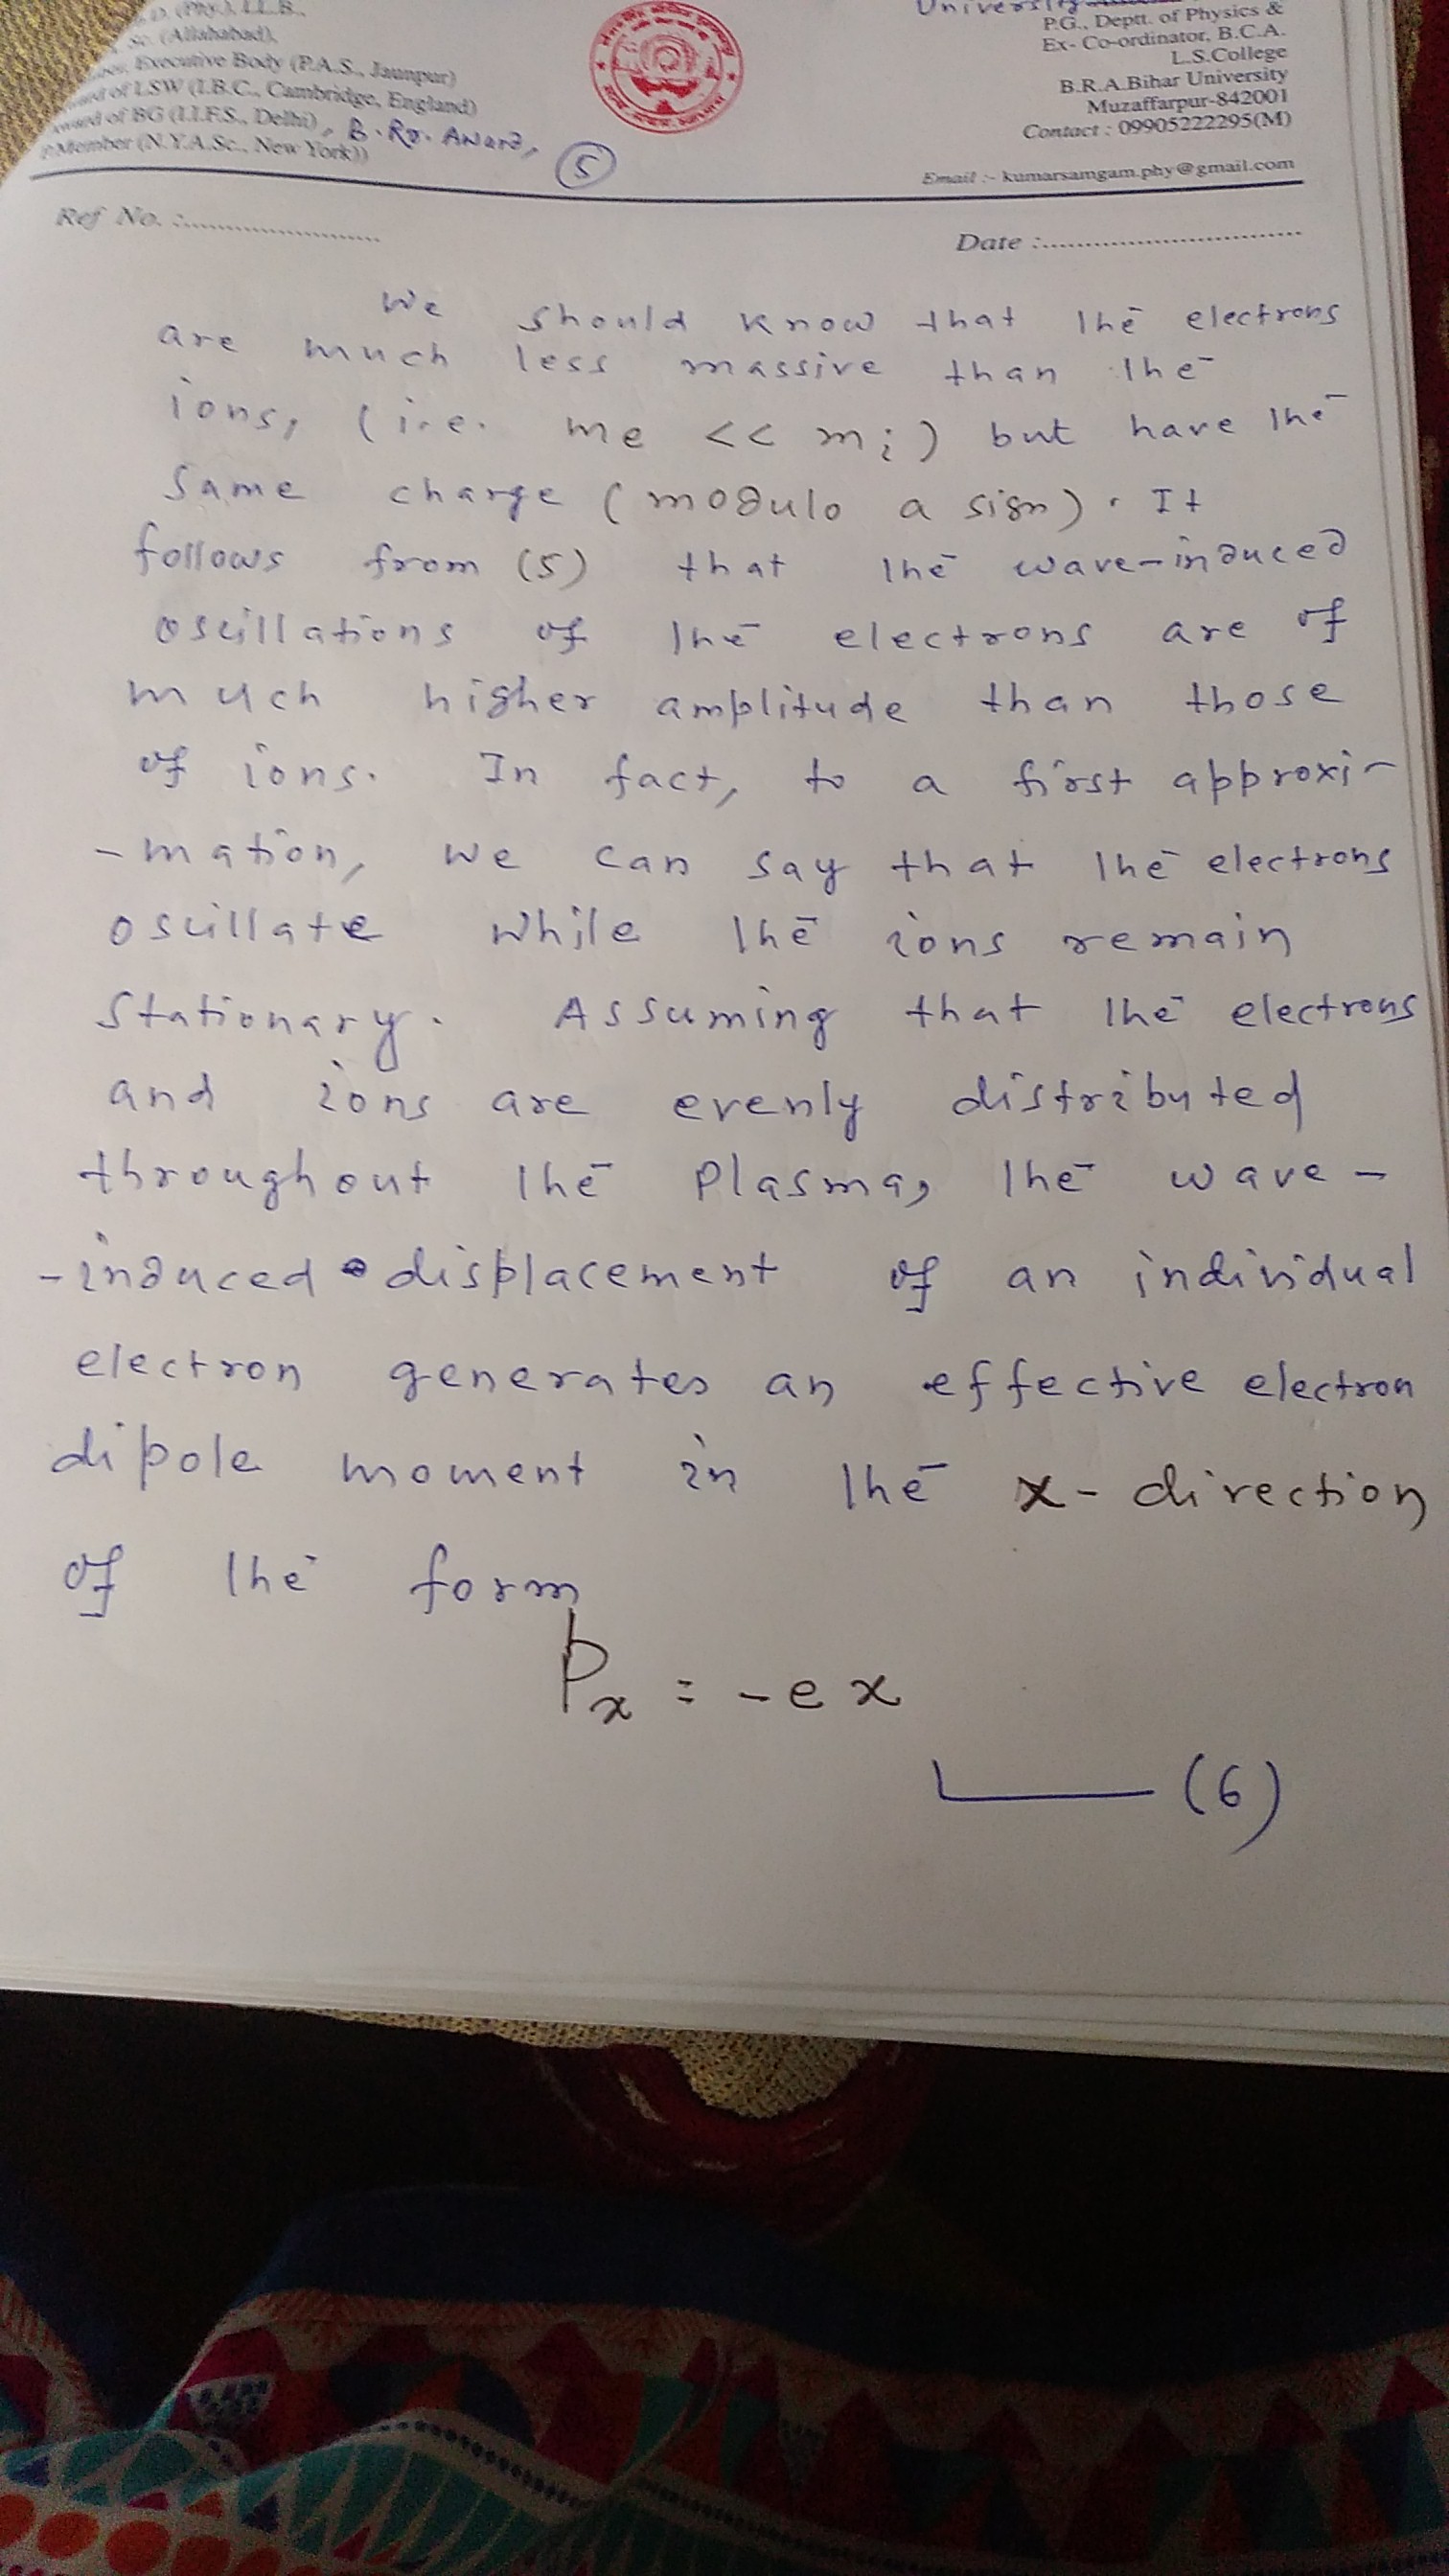 D. (Phy.), LL.B.,
Sc. (Allahabad),
Executive Body (P.A.S., Jaunpur)
of LSW (I.B.C., Cambridge, England)
of BG (I.I.F.S., Delhi), B. Rg. Award,
Member (N.Y.A.Sc., New York))
5
University
P.G., Deptt. of Physics &
Ex- Co-ordinator, B.C.A.
L.S.College
B.R.A.Bihar University
Muzaffarpur-842001
Contact : 09905222295(M)
Email :- kumarsamgam.phy@gmail.com
Ref No. :........................
Date :................................
We should know that the electrons
are much less massive than the
ions, (i.e. me << mi) but have the
same charge (modulo a sign). It
follows from (5) that the wave-induced
oscillations of the electrons are of
much higher amplitude than those
of ions. In fact, to a first approxi-
-mation, we can say that the electrons
oscillate while the ions remain
stationary. Assuming that the electrons
and ions are evenly distributed
throughout the plasma, the wave-
-induced displacement of an individual
electron generates an effective electron
dipole moment in the x-direction
of the form
Px = -ex
(6)